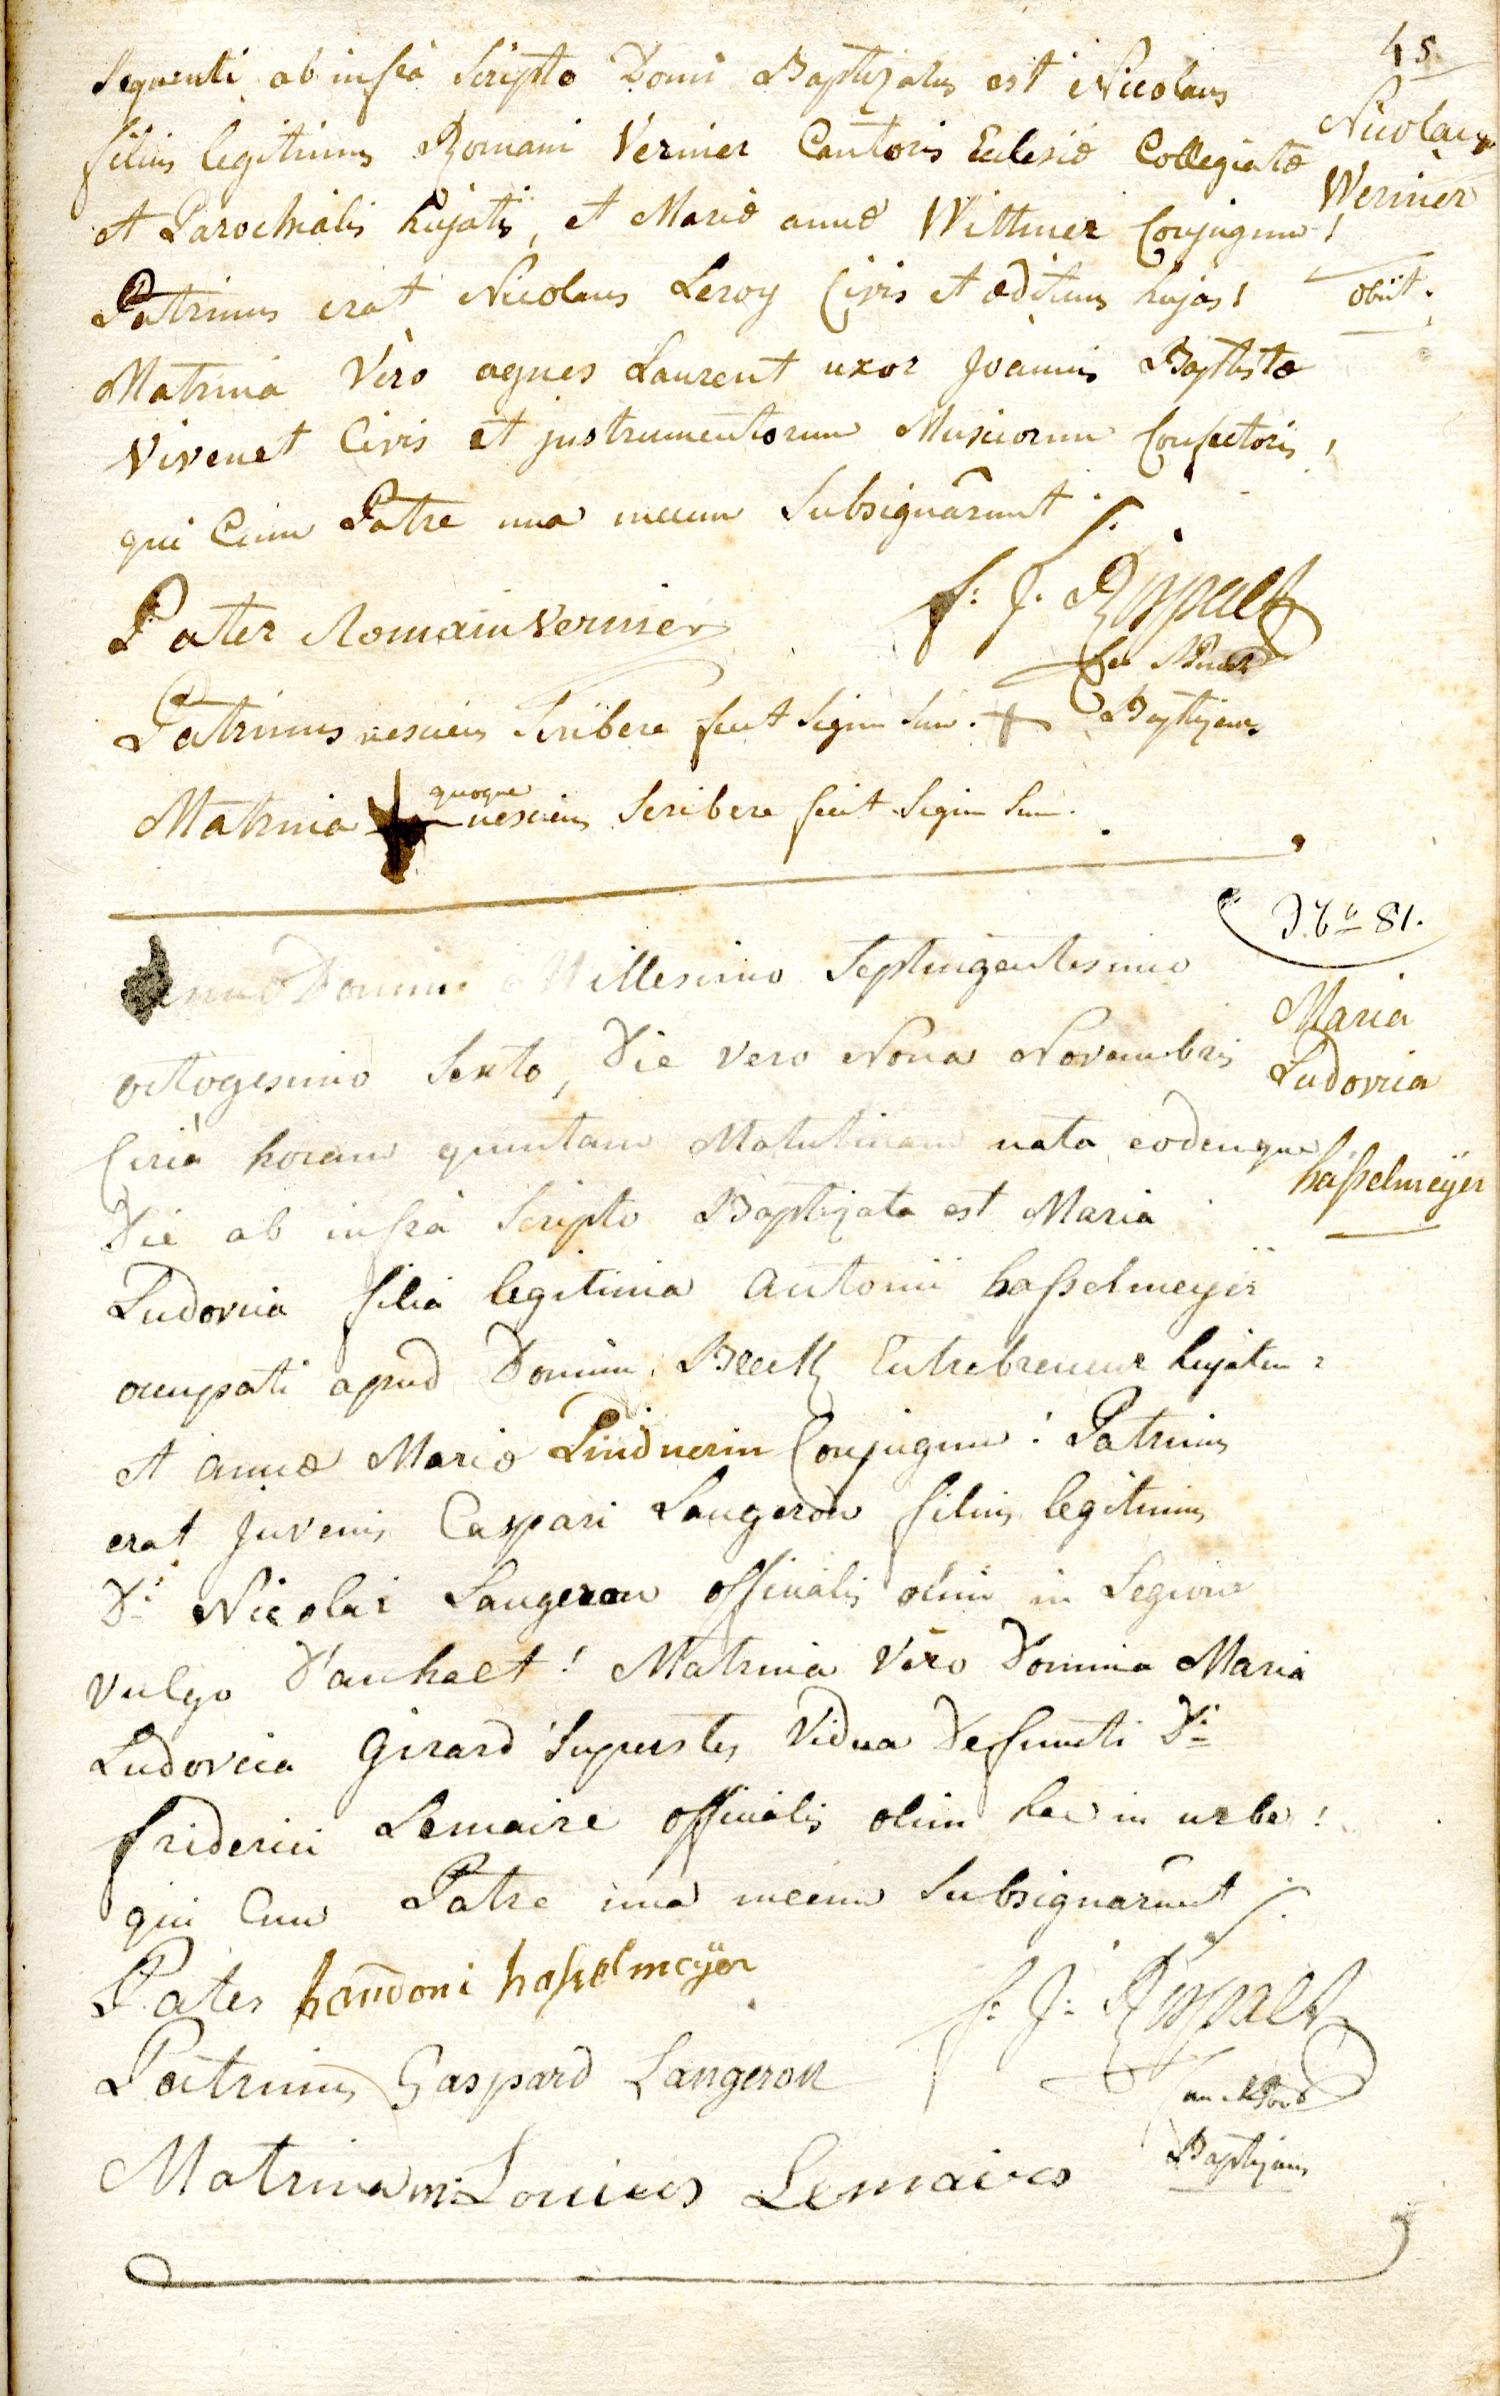 45
sequenti ab infrà scripto Domi Baptizatus est Nicolaus
filius legitimus Romani Vernier Cantoris Eclesiæ Collegiatæ
et Parochialis hujatis, et Mariæ annæ Wittmer Conjugum!
Nicolaus
Vernier
obiit.
Patrinus erat Nicolaus Leroy Civis et ædituus hujas!
Matrina Vero agnes Laurent uxor Joannis Baptistæ
Vivenet Civis et justrumentorum Musicorum Confectoris,
qui Cum Patre una mecum Subsignârunt
Pater Romain vernier
f: J.
Patrinus nesciens Scribere fecit Signu Suu. +
Baptizans
Matrina quoque nesciens Scribere fecit Signu Suu.
81.
Maria
Ludovica
haßelmeÿer
Anno Domini Millesimo Septingentesimo
octogesimo Sexto, Die vero Nona Novembris
Circà horam quintam Matutinam nata eodemque
Die ab infrà Scripto Baptizata est Maria
Ludovica filia legitima Antonii haßelmeÿer
occupati apud Dominu Entrebreneur hujatem
et annæ Mariæ Lindnerin Conjugum! Patrinus
erat Juvenis Caspari Langeron filius legitimus
Di Nicolai Langeron officialis olim in Legione
Vulgo D'anhalt! Matrina Vero Domina Maria
Ludovica Girard Superstes Vidua Defuncti Di
friderici Lemaire officialis olim hac in urbe!
qui Cum Patre una mecum Subsignârunt
Pater handoni haßelmeÿer
f: J:
Patrinus Gaspard Langeron
Baptizans
Matrina m: Louises Lemaires